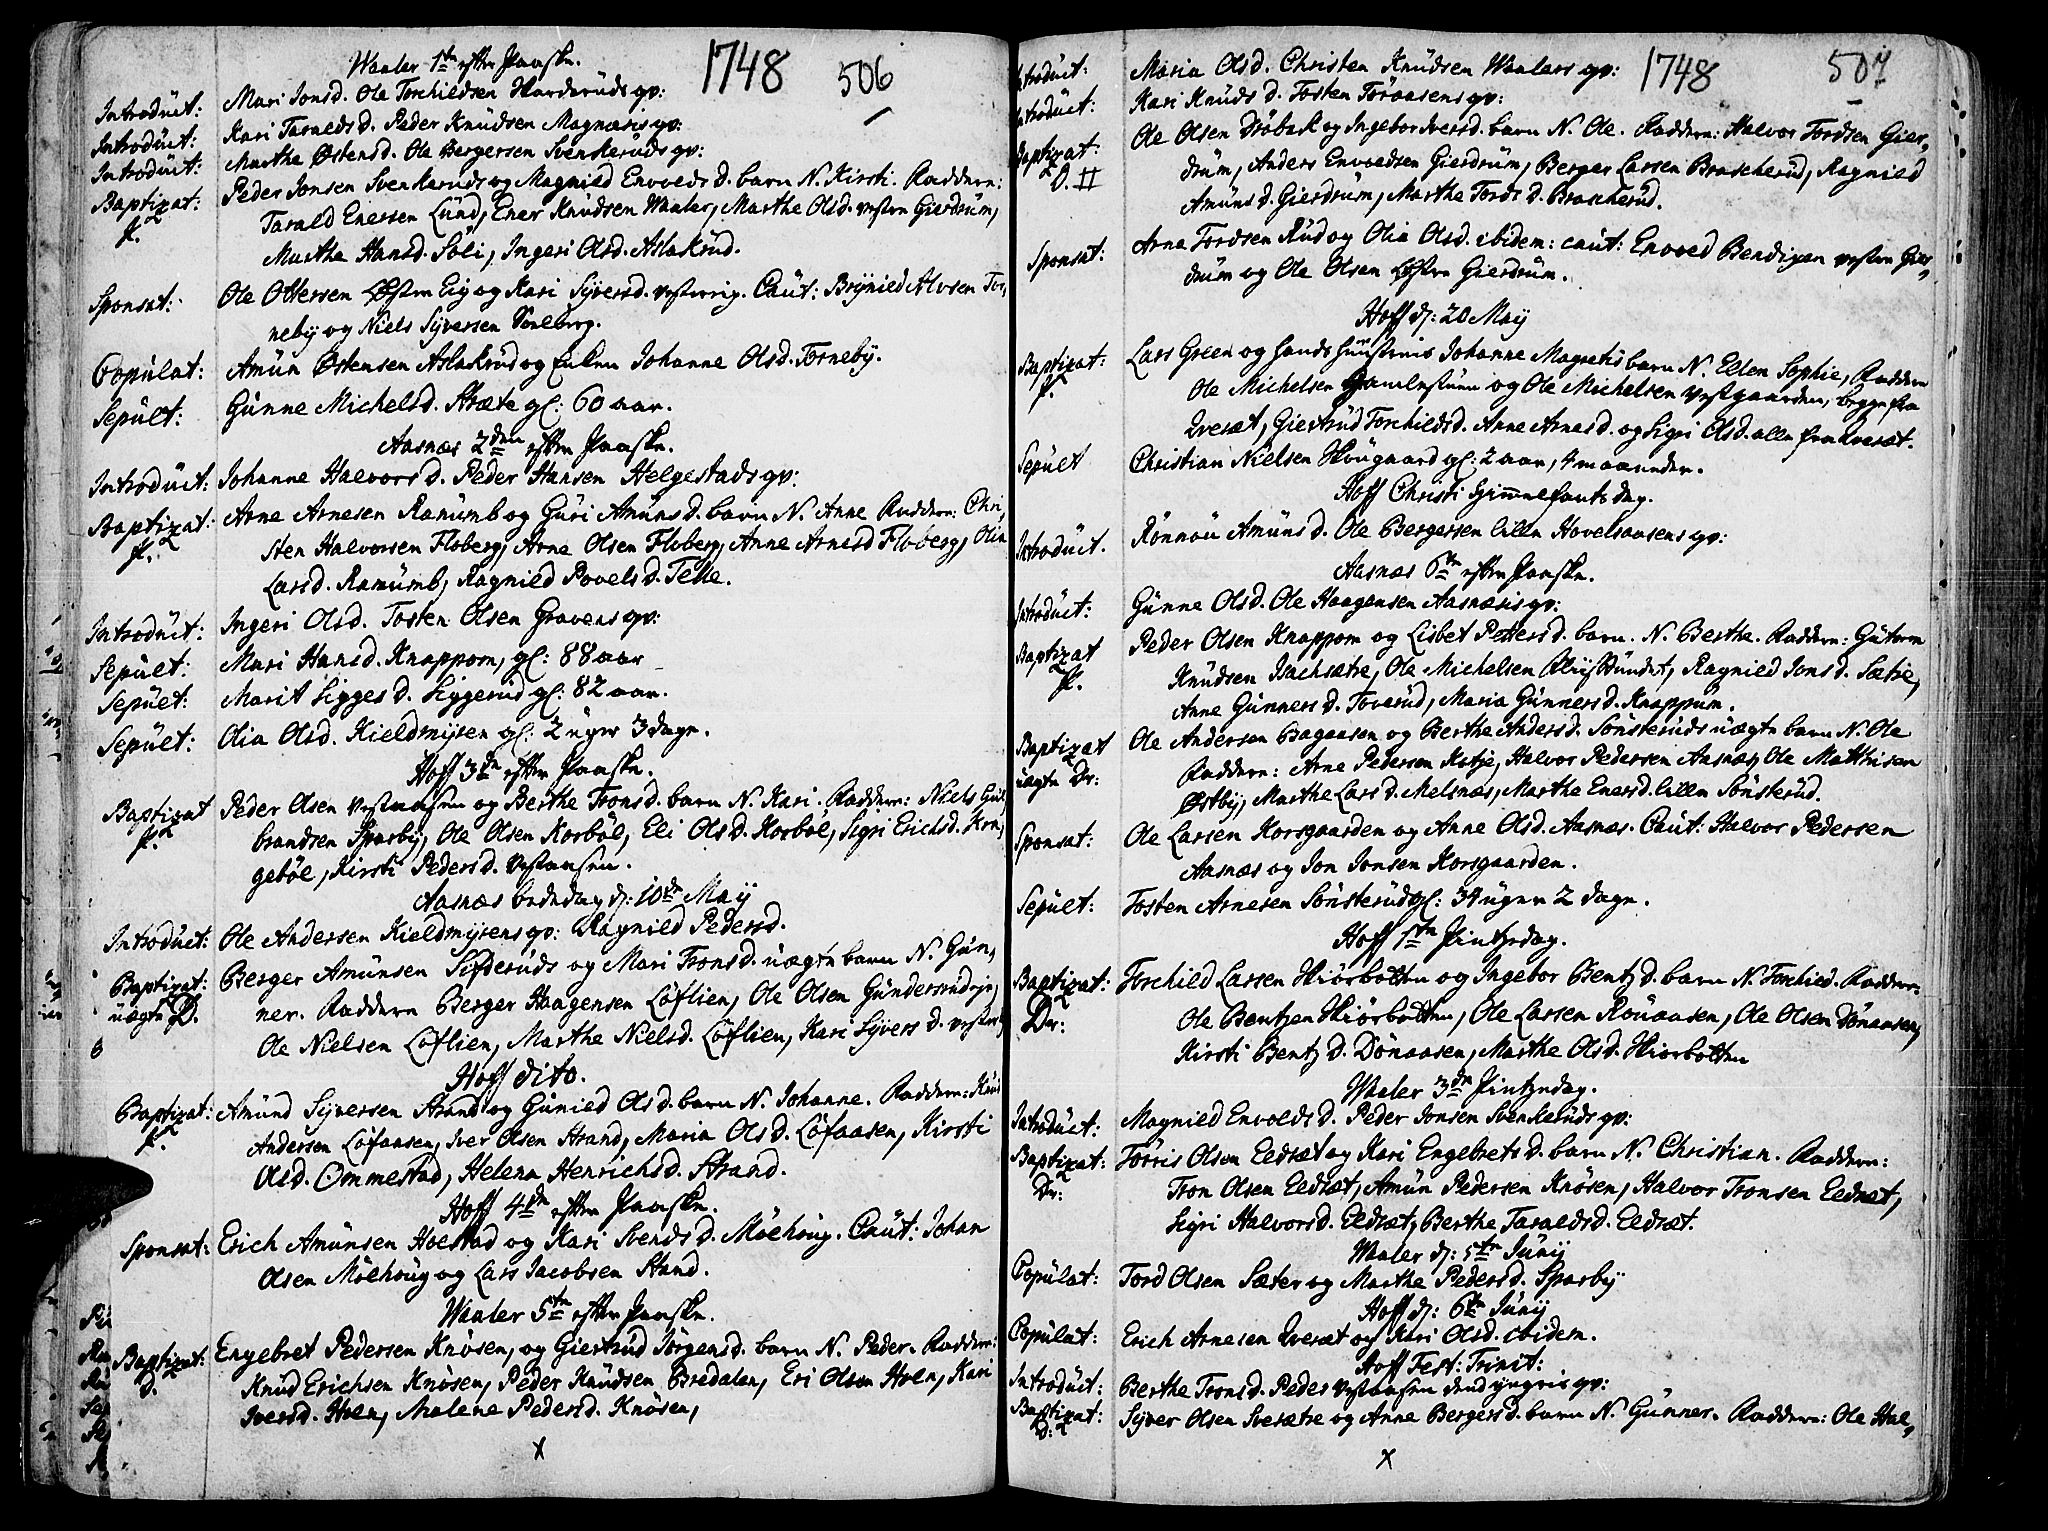 1748 506
Waaler 1te efter Paaske.
Introduct: Mari Jonsd. Ole Torchildsen Harderuds qv:
Introduct: Kari Taraldsd. Peder Knudsen Magnæsis qv:
Introduct: Marthe Østensd. Ole Bergersen Svenkeruds qv:
Baptizat: Peder Jonsen Svenkerud og Magnild Envoldsd. barn N. Kirsti. Faddern:
Tarald Enersen Lund, Ener Knudsen Waaler, Marthe Olsd. vestre Gierdrum,
Marthe Hansd. Söli, Ingeri Olsd. Aslakrud.
Sponsat: Ole Ottersen Østre Eig og Kari Syversd. vestereig. Caut: Brynild Alvsen Tor,
neby og Niels Syversen
Copulat: Amun Østensen Aslakrud og Enken Johanne Olsd. Torneby.
Sepult: Gunne Michelsd. Stræte gl: 60 aar.
Aasnæs 2den efter Paaske.
Introduct: Johanne Halvorsd. Peder Hansen Helgestads qv:
Baptizat: Arne Arnesen Ramumb og Guri Amunsd. barn N. Anne Faddern: Chri,
sten Halvorsen Floberg, Arne Olsen Floberg, Anne Arnesd Floberg, Olia
Larsd. Ramumb, Ragnild Povelsd. Telle.
Introduct: Ingeri Olsd. Tosten Olsen Gravens qv:
Sepult: Mari Hansd. Knappom, gl: 88 aar
Sepult: Marit Siggesd. Siggerud gl: 82 aar.
Sepult: Olia Olsd. Kieldmyren gl: 2 uger 3 dage.
Hoff 3de efter Paaske.
Baptizat Peder Olsen vestaasen og Berthe Tronsd. barn N. Kari. Faddern: Niels Gul
brandsen Sparby, Ole Olsen Korböl, Eli Olsd. Korböl, Sigri Erichsd. Kon,
geböl, Kirsti Pedersd. vestaasen.
Aasnæs bededag d: 10de May
Introduct: Ole Andersen Kieldmyrens qv: Ragnild Pedersd.
Baptizat: Berger Amunsen Sifderuds og Mari Tronsd. uægte barn N. Gun,
uægte D. ner. Faddern Berger Haagensen Löflien, Ole Olsen
Ole Nielsen Löflien, Marthe Nielsd. Löflien, Kari Syversd.
Hoff dito.
Baptizat: Amund Syversen Strand og Gunild Olsd. barn N. Johanne. Faddern: Knud
Andersen Löfaasen, Iver Olsen Strand, Maria Olsd. Löfaasen, Kirsti
Olsd. Ommestad, Helena Henrichsd. Strand.
Hoff 4de efter Paaske.
Sponsat: Erich Amunsen Hoelstad og Kari Svendsd. Möehoug. Caut: Johan
Olsen Möehoug og Lars Jacobsen Stand.
Waaler 5te efter Paaske.
Baptizat: Engebret Pedersen Knösen, og Giertrud Jörgensd. barn N. Peder. Faddern:
D. Knud Erichsen Knösen, Peder Knudsen Bredalen, Eri Olsen Hoen, Kari
Iversd. Hoen, Malene Pedersd. Knösen,
x
1748 507
Introduct: Maria Olsd. Christen Knudsen Waalers qv:
Introduct: Kari Knudsd. Tosten Toraasens qv:
Baptizat: Ole Olsen Dröbak og Ingebor Iversd. barn N. Ole. Faddern: Halvor Tordsen Gier,
D. II drum, Anders Envoldsen Gierdrum, Berger Larsen Brascherud, Ragnild
Amunsd. Gierdrum, Marthe Tordsd. Brascherud.
Sponsat: Arna Tordsen Rud og Olia Olsd. ibidem: caut: Envold Bendixen vestre Gier,
drum og Ole Olsen Østre Gierdrum.
Hoff d: 20 May
Baptizat: Lars Green og hands hustrues Johanne Magrethis barn N. Ellen Sophie, Faddern
Ole Michelsen Gamlestuen og Ole Michelsen vestgaarden, begge fra
Qveset, Giertrud Torchildsd. Anne Arnesd. og Sigri Olsd. alle fra Qveset.
Sepult Christian Nielsen Hougaard gl: 2 aar, 4 maaneder.
Hoff Christi Himmelfarts dag.
Introduct. Rönnou Amunsd. Ole Bergersen lille Hovelsaasens qv:
Aasnæs 6te efter Paaske.
Introduct: Gunne Olsd. Ole Haagensen Aasnæsis qv:
Baptizat Peder Olsen Knappom og Lisbet Pettersd. barn. N. Berthe. Faddern: Gutorm
Knudsen Isachsætre, Ole Michelsen, Ragnild Jonsd. Sætre,
Anne Gunnersd. Toverud, Maria Gunnersd. Knappum.
Baptizat Ole Andersen Bagaasen og Berthe Andersd. Sönsteruds uægte barn N. Ole
uægte Dr: Faddern: Arne Pedersen Katje, Halvor Pedersen Aasnæs, Ole Matthisen
Østby, Marthe Larsd. Melsnæs, Marthe Enersd. lille Sönsterud.
Sponsat: Ole Larsen Korsgaarden og Anne Olsd. Aasnæs. Caut: Halvor Pedersen
Aasnæs og Jon Jonsen Korsgaarden.
Sepult: Tosten Arnesen Sönsterud gl: 34 uger 2 dage.
Hoff 1te Pintzedag.
Baptizat: Torchild Larsen Kiörbotten og Ingebor Bentzd. barn N. Torchild. Faddern:
Dr: Ole Bentzen Kiörbotten, Ole Larsen Rönaasen, Ole Olsen Dönaasen,
Kirsti Bentzd. Dönaasen, Marthe Olsd. Kiörbotten
Waaler 3de Pintzedag.
Introduct: Magnild Envoldsd. Peder Jonsen Svenkeruds qv:
Baptizat: Törris Olsen Eldset og Kari Engebretsd. barn N. Christian. Faddern:
Dr: Tron Olsen Eldset, Amun Pedersen Knösen, Halvor Tronsen Eldset,
Sigri Halvorsd. Eldset, Berthe Taraldsd. Eldset.
Waaler d: 5te Juny
Copulat: Tord Olsen Sæter og Marthe Pedersd. Sparby
Hoff d: 6te Juny
Copulat: Erich Arnesen Qveset og Kari Olsd. ibidem.
Hoff Fest: Trinit:
Introduct: Berthe Tronsd. Peder vestaasen dend yngris qv:
Baptizat: Syver Olsen Svesætre og Anne Bergersd. barn N. Gunner. Faddern: Ole Hal,
D:
x